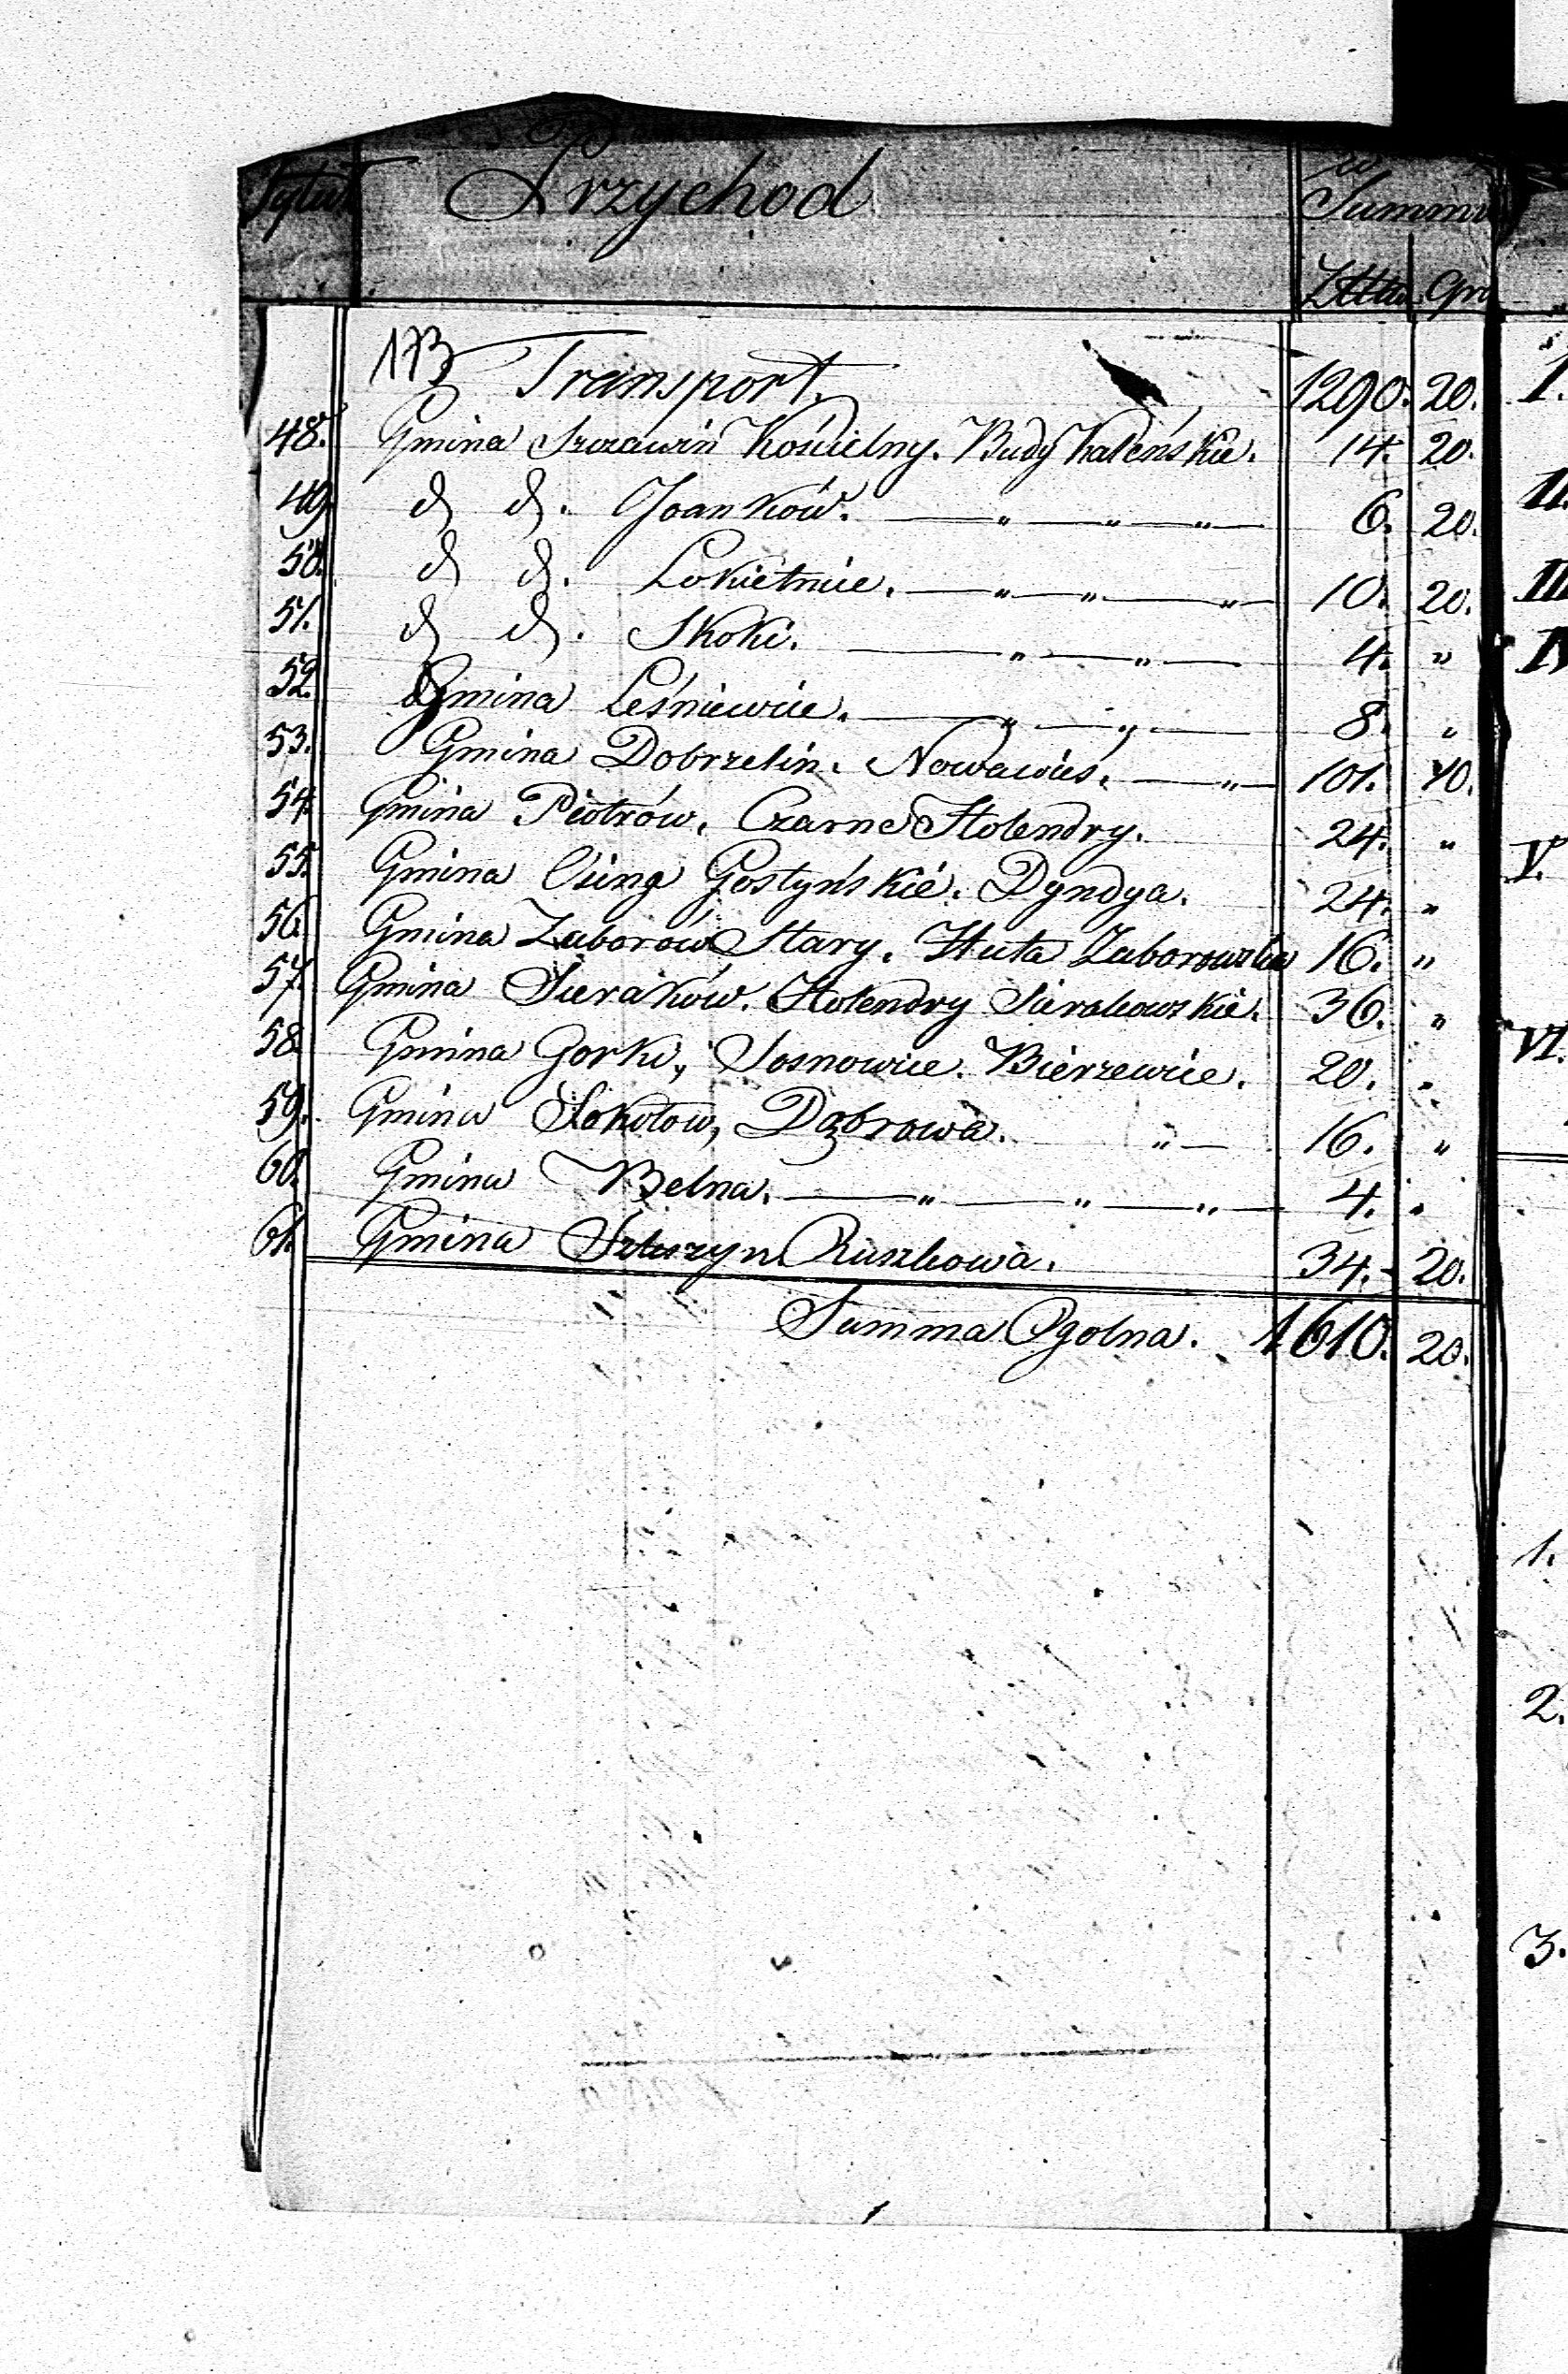 Tytuł Przychod w Summie
Złtow Gro
173 Transport. 1290. 20.
48. Gmina Szczawin Kościelny. Budy Kaleńskie. 14. 20.
49. d d. Joanków. — „ — „ — „ — 6. 20.
50. d d. Lokietnice. — „ — „ — „ — 10. 20.
51. d d. Skoki. — „ — „ — 4. „
52. Gmina Leśniewice. — „ — „ — 8. „
53. Gmina Dobrzelin. Nowawieś. — „ — 101. 10.
54. Gmina Piotrów. Czarne Holendry. 24. „
55. Gmina Osiny Gostyńskie. Dyndya. 24. „
56. Gmina Zaborów Stary. Huta Zaborowska 16. „
57. Gmina Sieraków. Holendry Sierakowskie. 36. „
58. Gmina Gorki, Sosnowice. Bierzewice. 20. „
59. Gmina Sokołow, Dąbrowa. „ — 16. „
60. Gmina Belna. — „ — „ — „ — 4. „
61. Gmina Ruszkowa. 34. 20.
Summa Ogolna. 1610. 20.
I.
II.
III.
IV
V.
VI.
1.
2.
3.